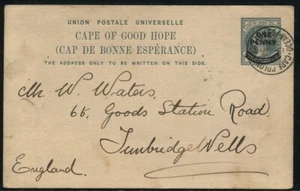 UNION POSTALE UNIVERSELLE
CAPE OF GOOD HOPE
(CAP DE BONNE ESPÉRANCE)
THE ADDRESS ONLY TO BE WRITTEN ON THIS SIDE.
ONE
PENNY
Mr W. Waters
66. Goods Station Road.
Tunbridge Wells
England.